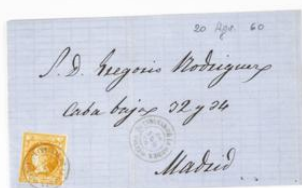 20 Ago. 60
S. D. Gregorio Rodriguez
Caba baja 32 y 34
Madrid